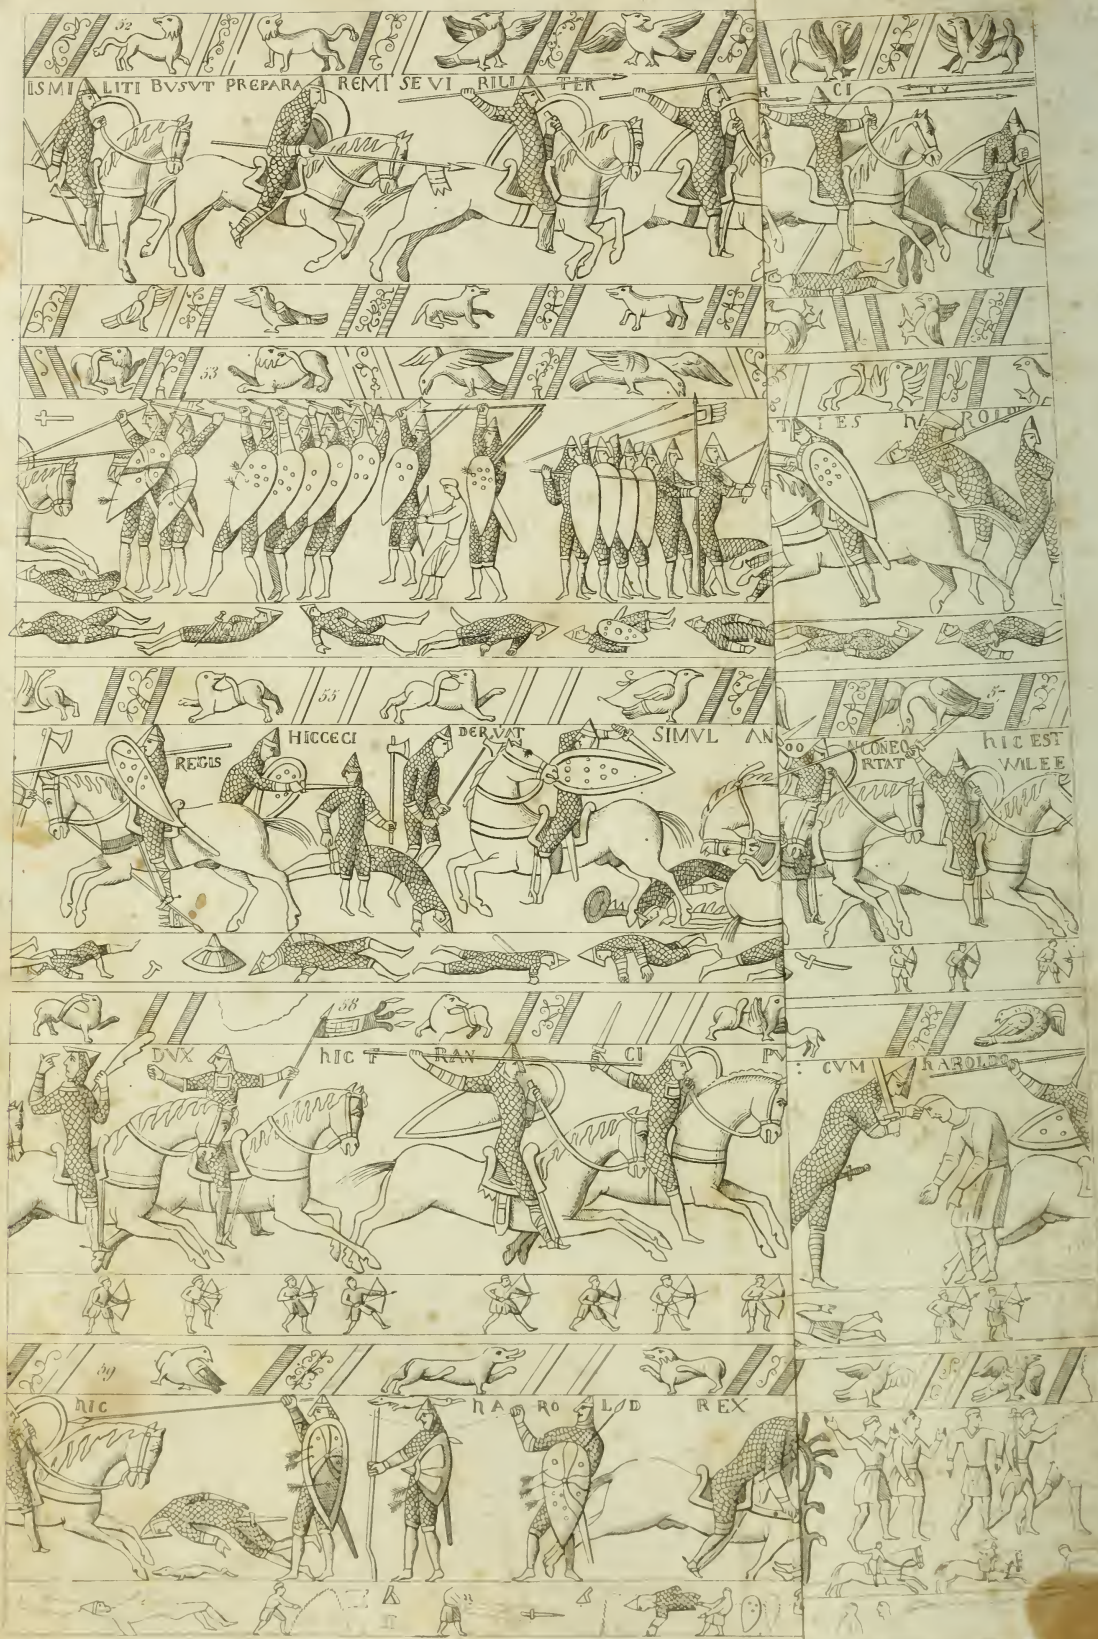 52
ISMI LITI BVSVT PREPARA REMI SE VI RILI TER CI TV
53
ES HAROLD
55
HIC CECI DERVAT SIMVL AN
REGIS
HIC EST
RTAT WILEE
58
DVX HIC F RAN CI PV : CVM HAROLDO
59
HIC HA RO LD REX